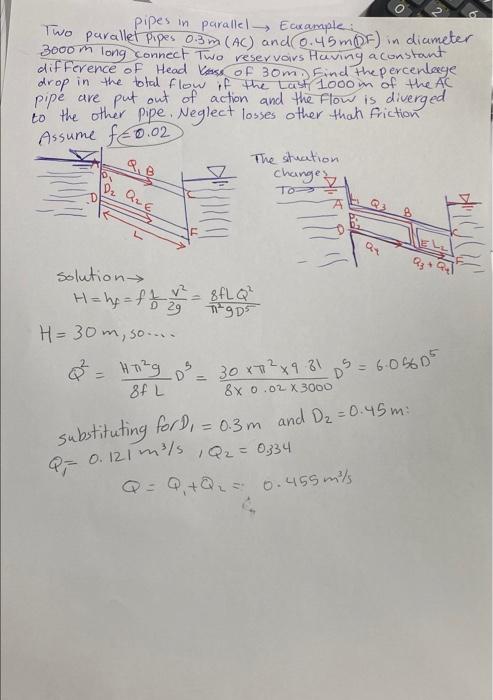 pipes in parallel → Ecxample:
Two parallel pipes 0.3m (AC) and (0.45m DF) in diameter
3000m long connect Two reservoirs Having a constant
difference of Head of 30m. Find the percentage
drop in the total flow if the Last 1000m of the AC
pipe are put out of action and the Flow is diverged
to the other pipe. Neglect losses other than friction
Assume f = 0.02
A Q1 B
D1
D2 Q2 E
D
C
F
L
The stuation
changes
To →
A L1 Q3 B
D1
D D2
Q4
E L2
C
F
Q3 + Q4
solution →
H = hf = f L/D V²/2g = 8fLQ²/π²gD⁵
H = 30 m, so....
Q² = Hπ²g/8fL D⁵ = 30 x π² x 9.81/8 x 0.02 x 3000 D⁵ = 6.056 D⁵
substituting for D1 = 0.3 m and D2 = 0.45 m:
Q1 = 0.121 m³/s , Q2 = 0,334
Q = Q1 + Q2 = 0.455 m³/s